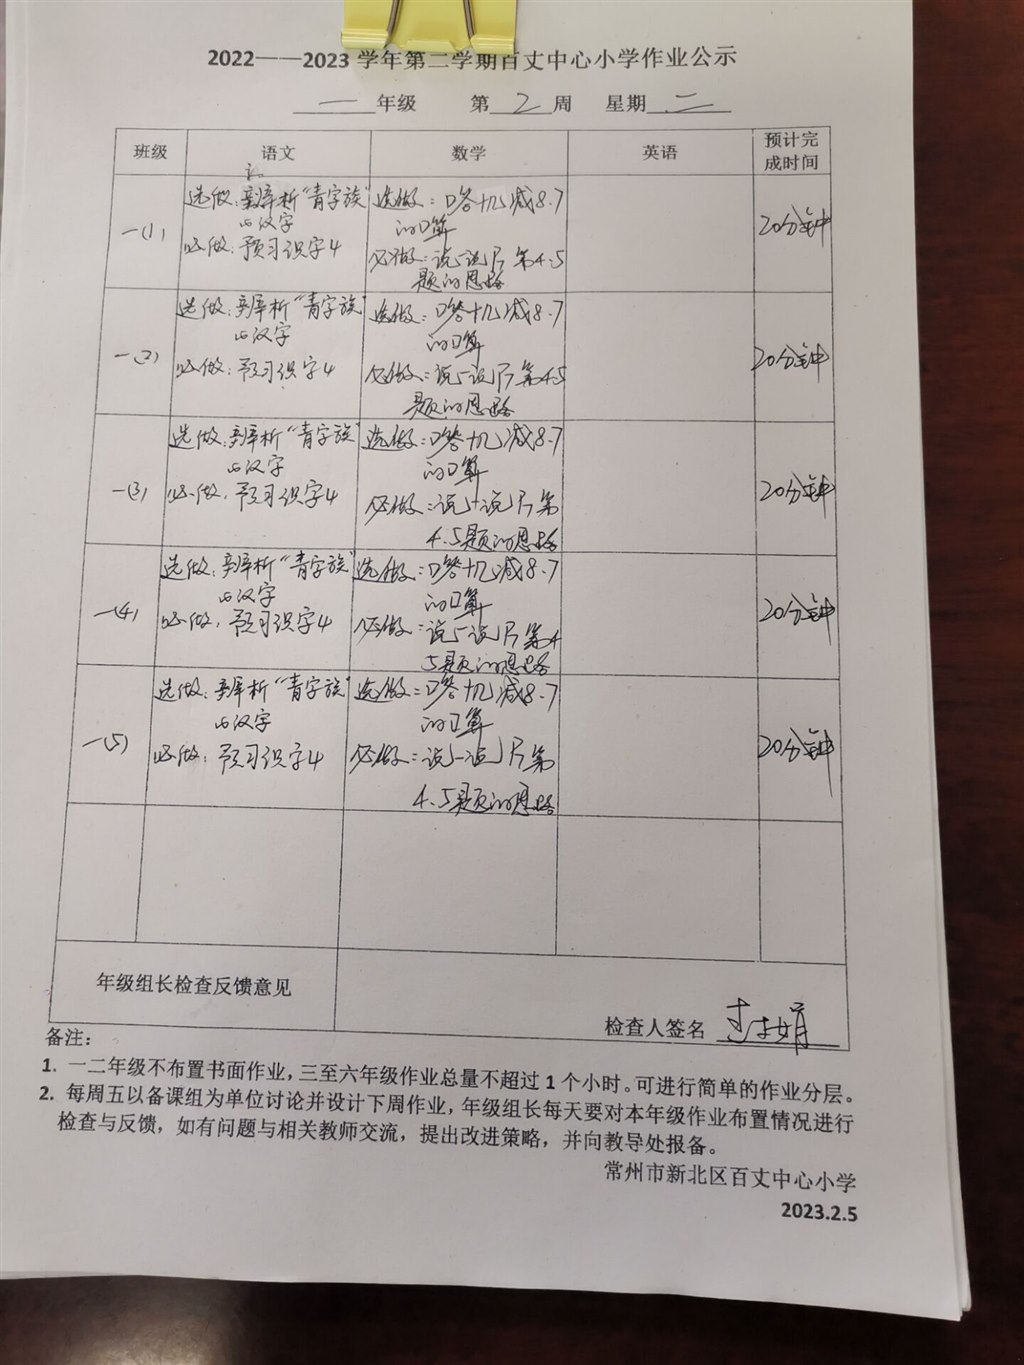 2022——2023 学年第二学期百丈中心小学作业公示
一 年级 第 2 周 星期 二
班级 语文 数学 英语 预计完成时间
一(1)
选做：辨析“青字族”
的汉字
必做：预习识字4
选做：口答十几减8.7
的口算
必做：说一说P 第4.5
题的思路
20分钟
一(2)
选做：辨析“青字族”
的汉字
必做：预习识字4
选做：口答十几减8.7
的口算
必做：说一说P 第4.5
题的思路
20分钟
一(3)
选做：辨析“青字族”
的汉字
必做：预习识字4
选做：口答十几减8.7
的口算
必做：说一说P 第
4.5题的思路
20分钟
一(4)
选做：辨析“青字族”
的汉字
必做：预习识字4
选做：口答十几减8.7
的口算
必做：说一说P 第4
5题的思路
20分钟
一(5)
选做：辨析“青字族”
的汉字
必做：预习识字4
选做：口答十几减8.7
的口算
必做：说一说P 第
4.5题的思路
20分钟
年级组长检查反馈意见
检查人签名
备注：
1. 一二年级不布置书面作业，三至六年级作业总量不超过 1 个小时。可进行简单的作业分层。
2. 每周五以备课组为单位讨论并设计下周作业，年级组长每天要对本年级作业布置情况进行
检查与反馈，如有问题与相关教师交流，提出改进策略，并向教导处报备。
常州市新北区百丈中心小学
2023.2.5